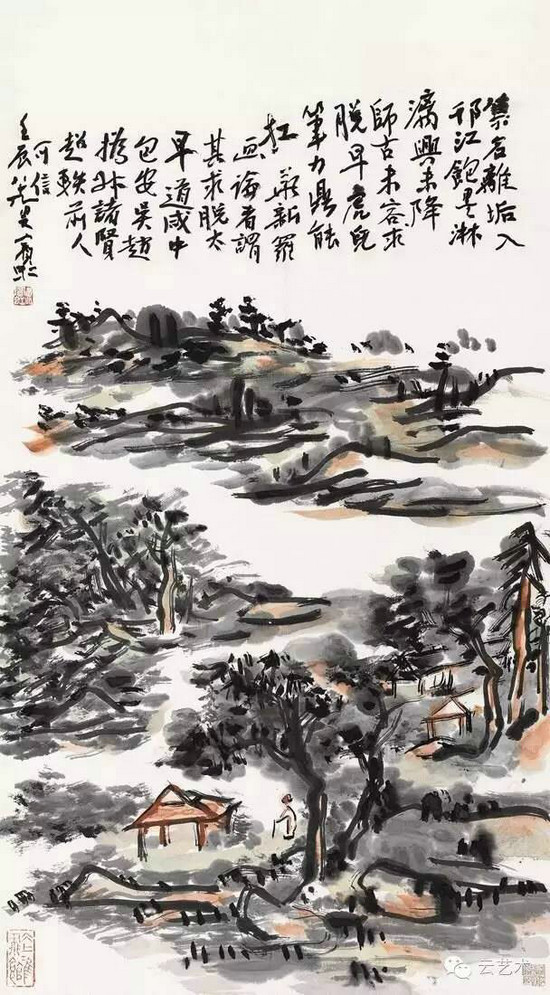 集名離垢入
邗江飽墨淋
漓興未降
師古未容求
脱早虎兒
筆力鼎能
扛 華新羅
画論者謂
其求脱太
早道咸中
包安吴趙
撝叔諸賢
超軼前人
可信
壬辰 賓虹
云艺术